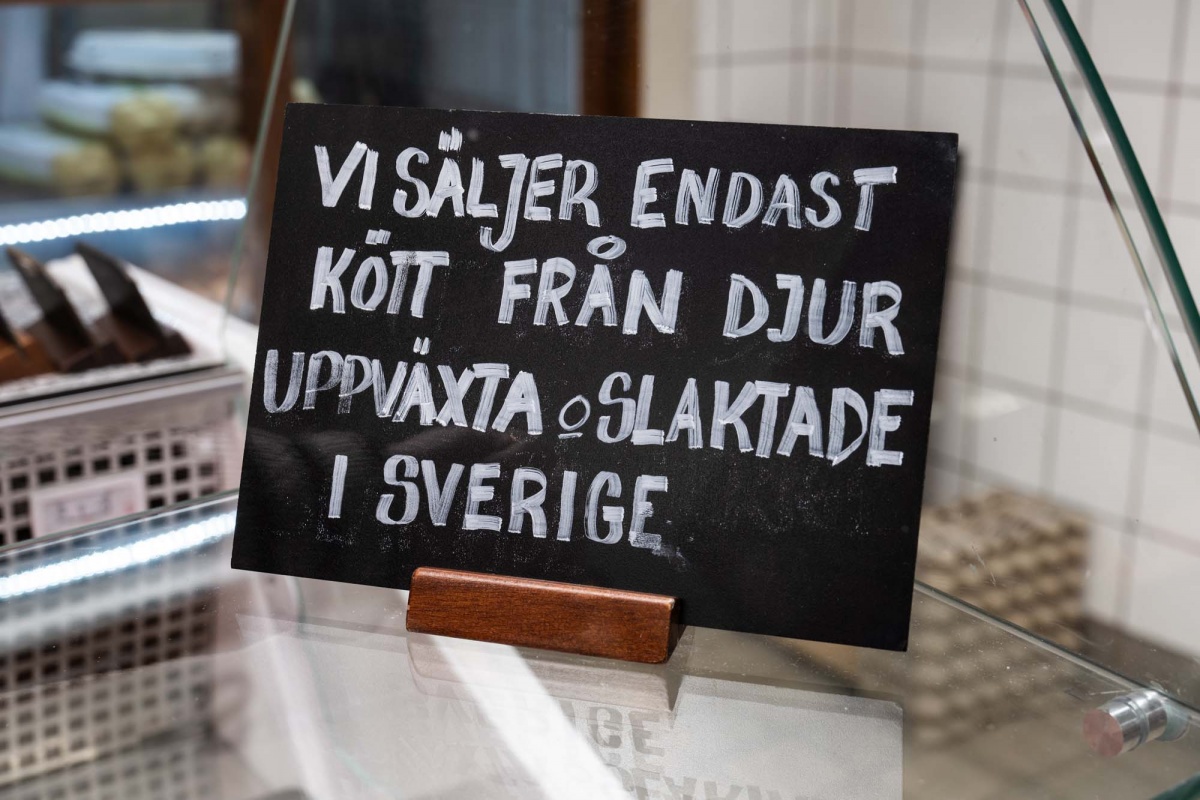 VI SÄLJER ENDAST
KÖTT FRÅN DJUR
UPPVÄXTA o SLAKTADE
I SVERIGE